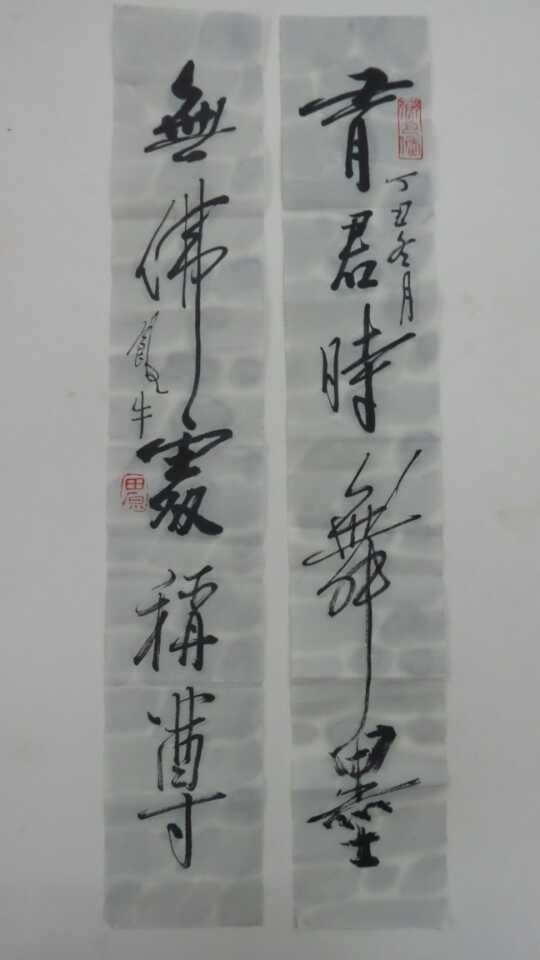 君時舞墨
丁丑冬月
無佛處稱尊
牛